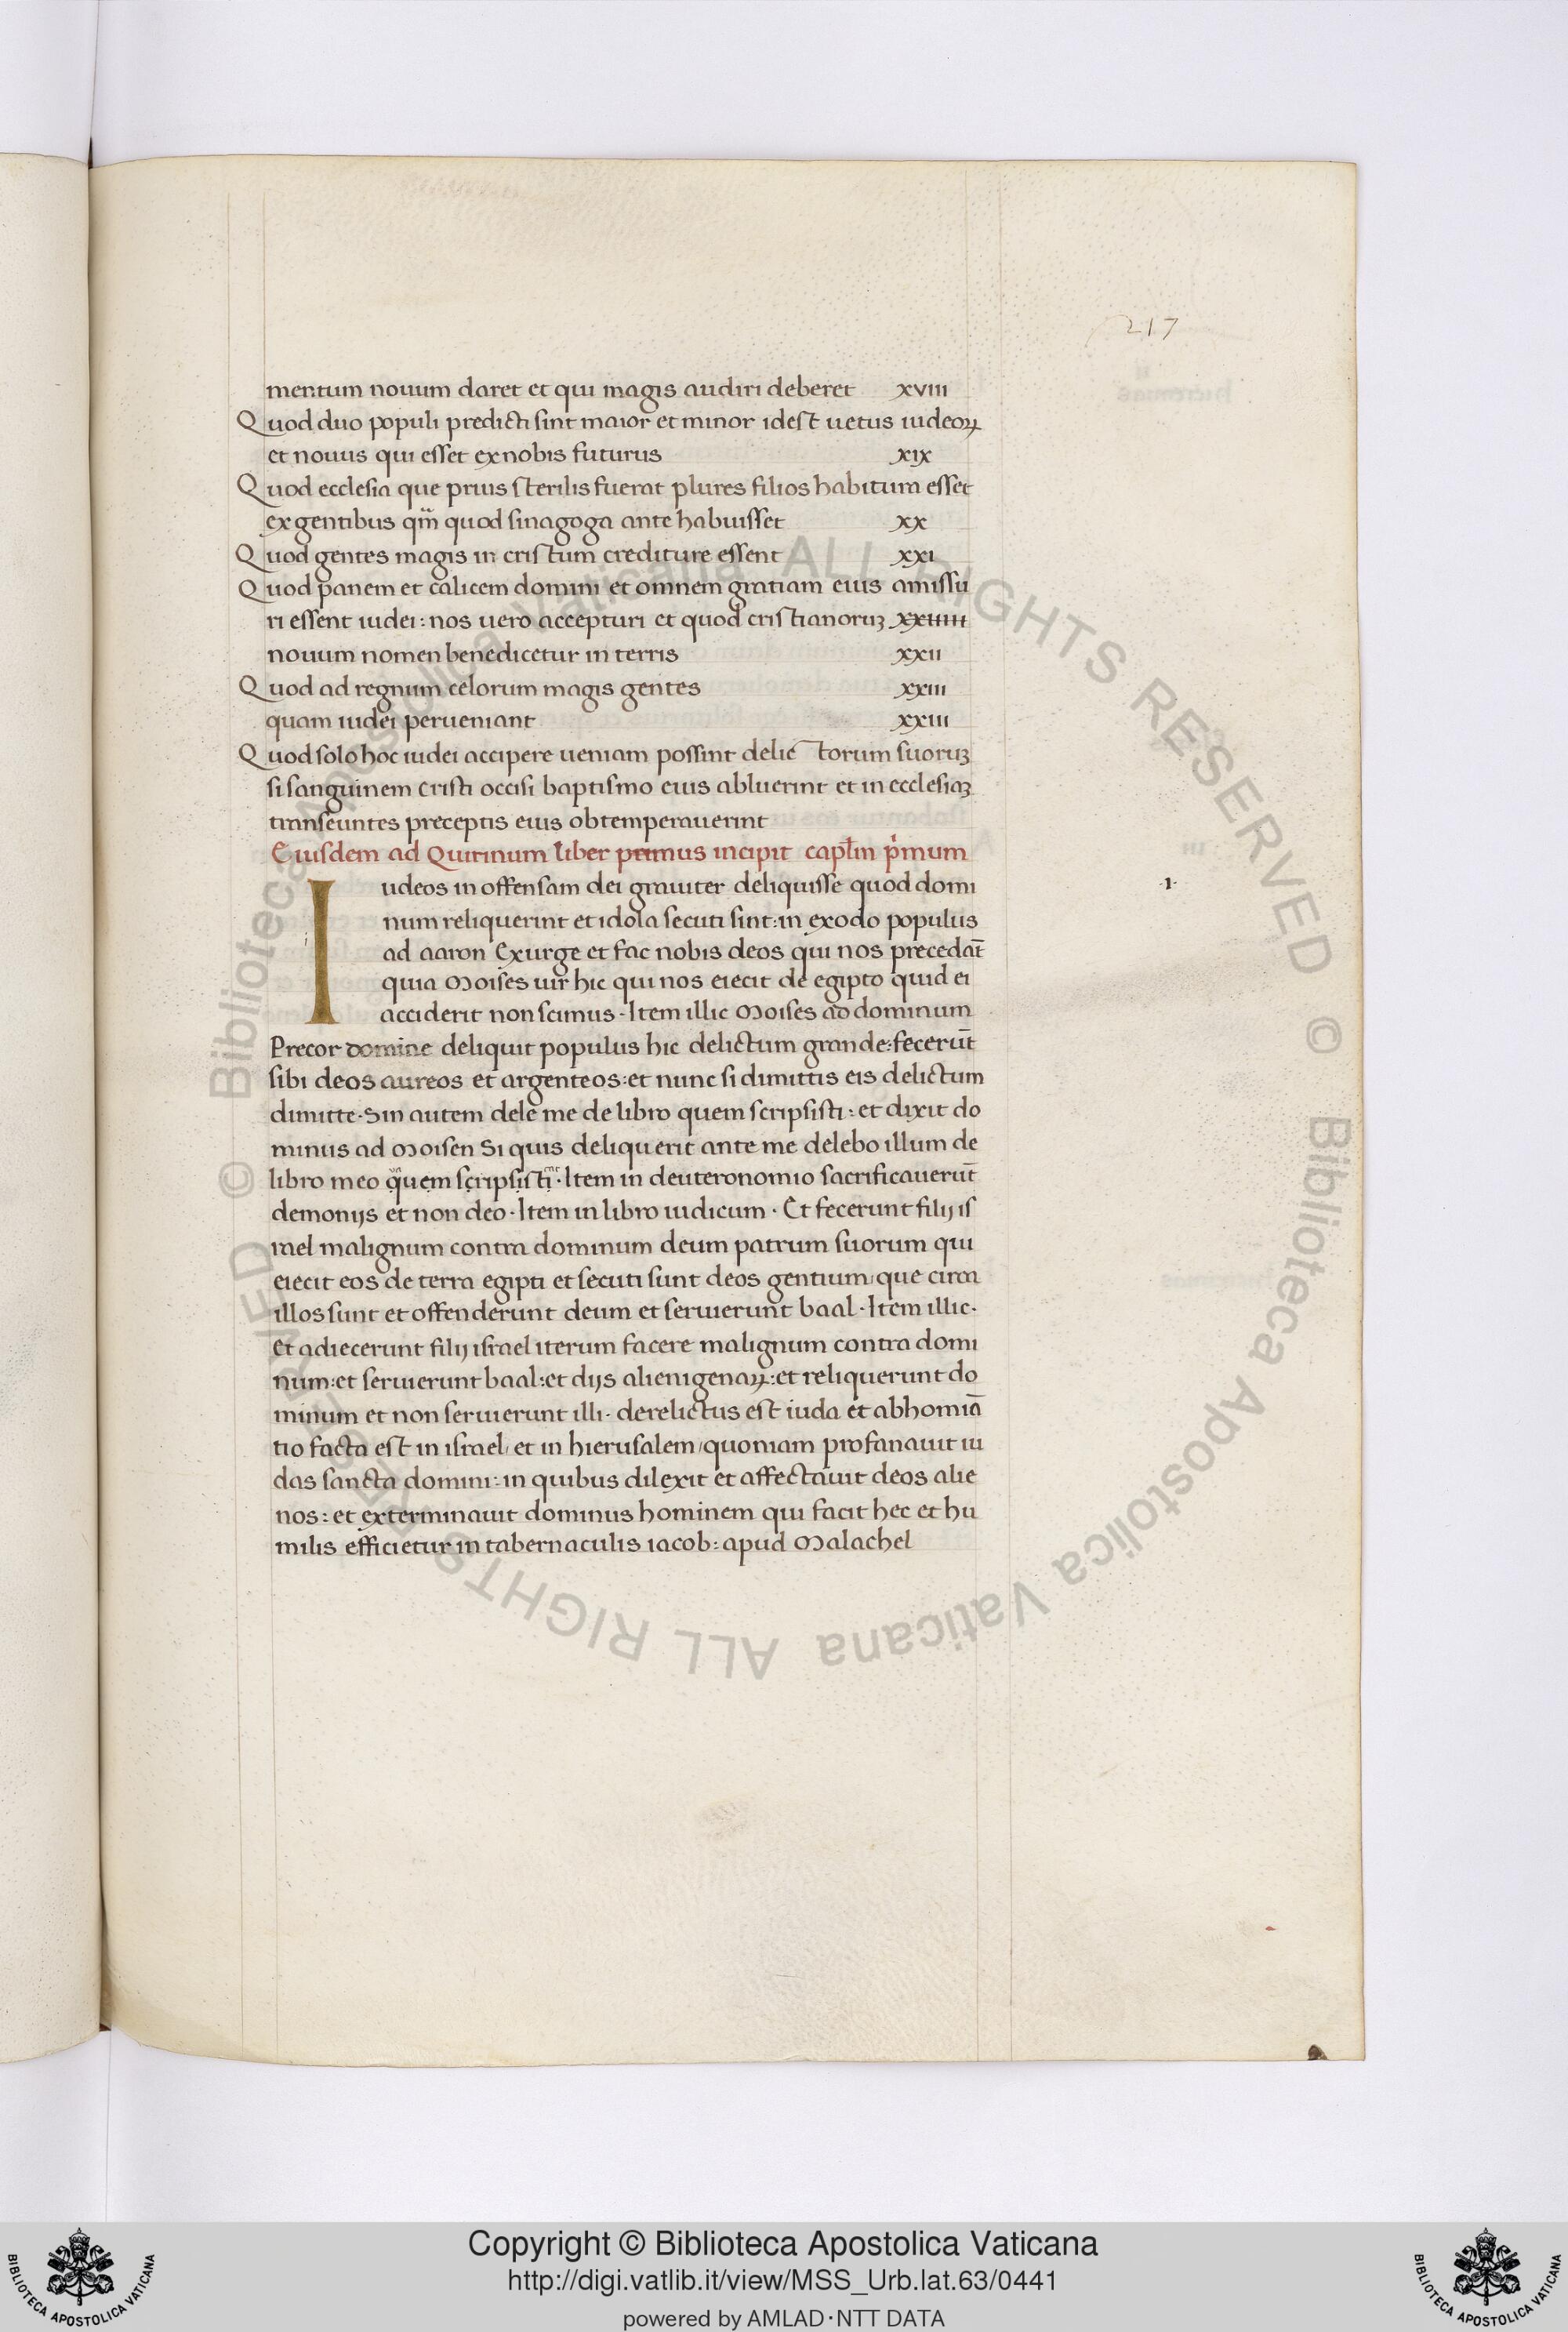 217
mentum nouum daret et qui magis audiri deberet xviii
Quod duo populi predicti sint maior et minor idest uetus iudeoꝝ
et nouus qui esset ex nobis futurus xix
Quod ecclesia que prius sterilis fuerat plures filios habitum esset
ex gentibus qm̅ quod sinagoga ante habuisset xx
Quod gentes magis in cristum crediture essent xxi
Quod panem et calicem domini et omnem gratiam eius amissu
ri essent iudei: nos uero accepturi et quod cristianoruꝫ xxiiii
nouum nomen benedicetur in terris xxii
Quod ad regnum celorum magis gentes xxiii
quam iudei perueniant xxiii
Quod solo hoc iudei accipere ueniam possint delic torum suoruꝫ
si sanguinem cristi occisi baptismo eius abluerint et in ecclesiaꝫ
transeuntes preceptis eius obtemperauerint
Eiusdem ad Quirinum liber primus incipit capłm p̍mum
Iudeos in offensam dei grauiter deliquisse quod domi ·1·
num reliquerint et idola secuti sint: in exodo populus
ad aaron Exurge et fac nobis deos qui nos precedat̅
quia Moises uir hic qui nos eiecit de egipto quid ei
acciderit non scimus · Item illic Moises ad dominum
Precor domine deliquit populus hic delictum grande: feceru̅t
sibi deos aureos et argenteos: et nunc si dimittis eis delictum
dimitte · Sin autem dele me de libro quem scripsisti: et dixit do
minus ad Moisen Si quis deliquerit ante me delebo illum de
libro meo quem scripsisti · Item in deuteronomio sacrificaueru̅t
demonijs et non deo · Item in libro iudicum · Et fecerunt filij is
rael malignum contra dominum deum patrum suorum qui
eiecit eos de terra egipti et secuti sunt deos gentium/ que circa
illos sunt et offenderunt deum et seruierunt baal · Item illic ·
Et adiecerunt filij israel iterum facere malignum contra domi
num: et seruierunt baal: et dijs alienigenaꝝ: et reliquerunt do
minum et non seruierunt illi · derelictus est iuda et abhomia̅
tio facta est in israel/ et in hierusalem/ quoniam profanauit iu
das sancta domini: in quibus dilexit et affectauit deos alie
nos: et exterminauit dominus hominem qui facit hec et hu
milis efficietur in tabernaculis iacob: apud Malachel
© Biblioteca Apostolica Vaticana ALL RIGHTS RESERVED
© Biblioteca Apostolica Vaticana ALL RIGHTS RESERVED
BIBLIOTECA APOSTOLICA VATICANA
Copyright © Biblioteca Apostolica Vaticana
http://digi.vatlib.it/view/MSS_Urb.lat.63/0441
powered by AMLAD·NTT DATA
BIBLIOTECA APOSTOLICA VATICANA